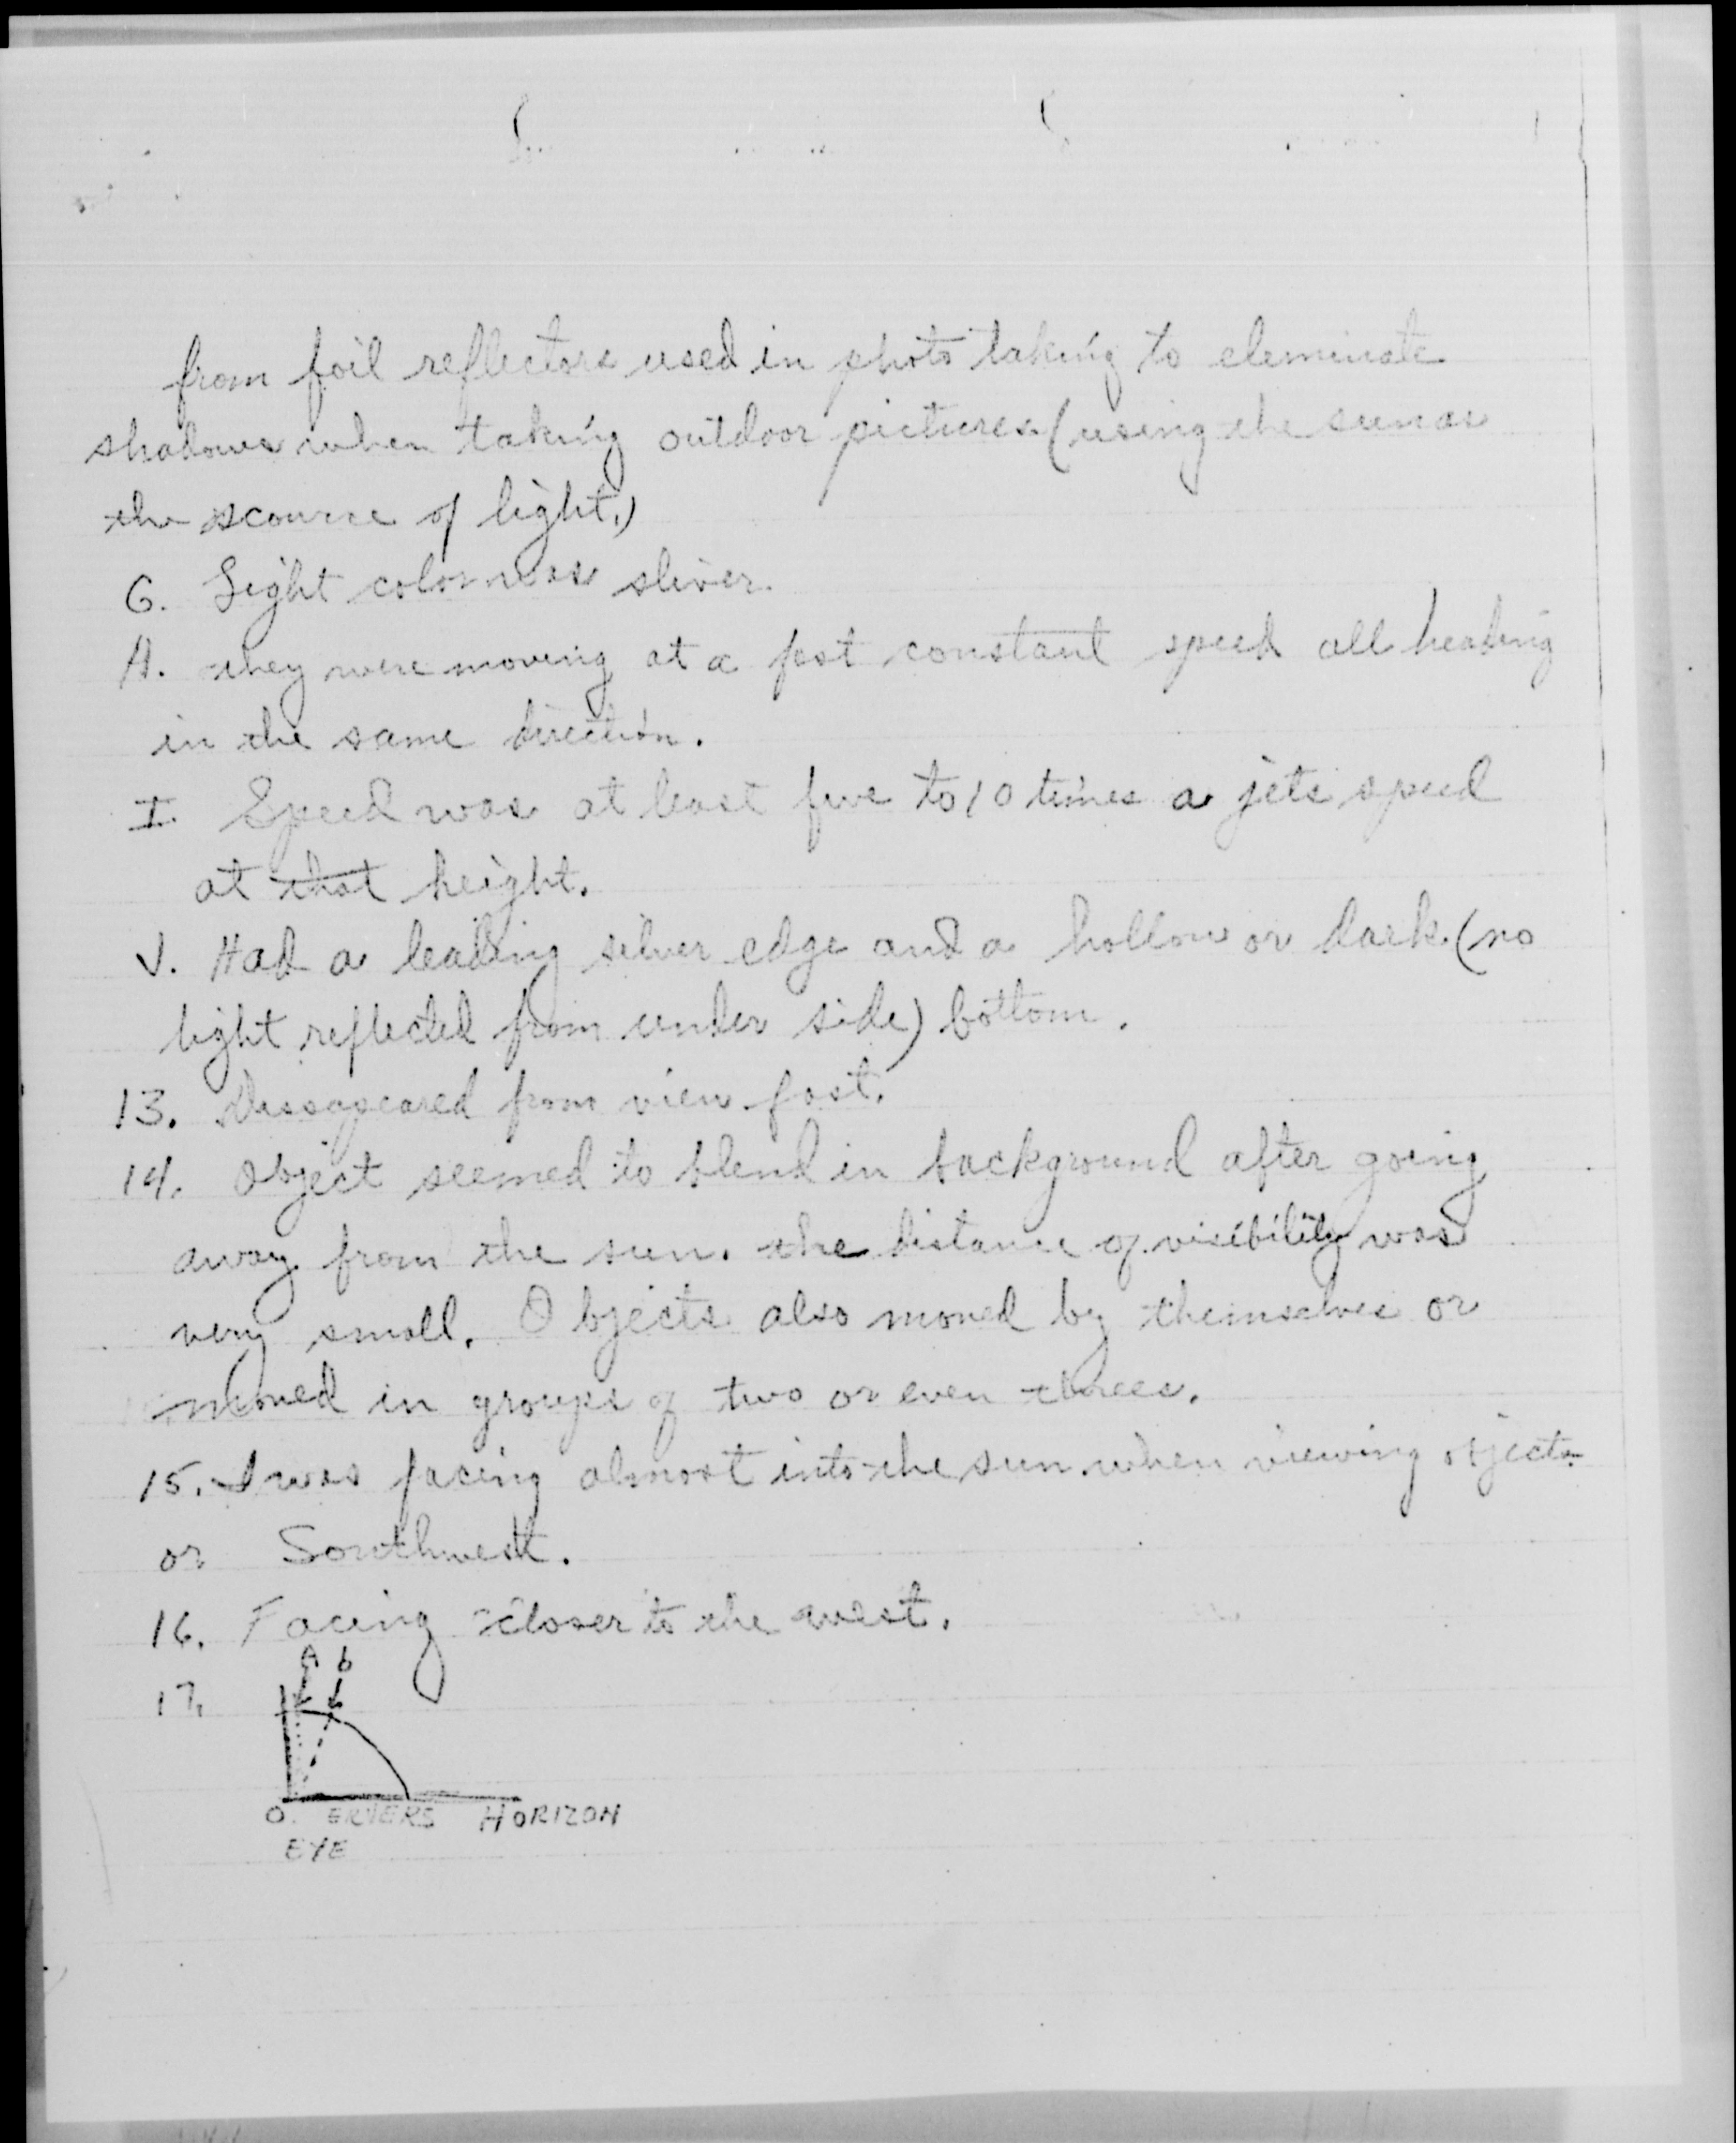 from foil reflectors used in photo taking to eleminate
shadows when taking outdoor pictures (using the sun as
the scource of light.)
G. Light color was sliver.
H. they were moving at a fast constant speed all heading
in the same direction.
I. Speed was at least five to 10 times a jets speed
at that height.
J. Had a leading silver edge and a hollow or dark (no
light reflected from under side) bottom.
13. Dissapeared from view fast.
14. Object seemed to blend in background after going
away from the sun. the distance of visibility was
very small. Objects also moved by themselves or
moved in groups of two or even threes.
15. I was facing almost into the sun when viewing objects
or Southwest.
16. Facing closer to the west.
A b
17.
O ERVERS HORIZON
EYE